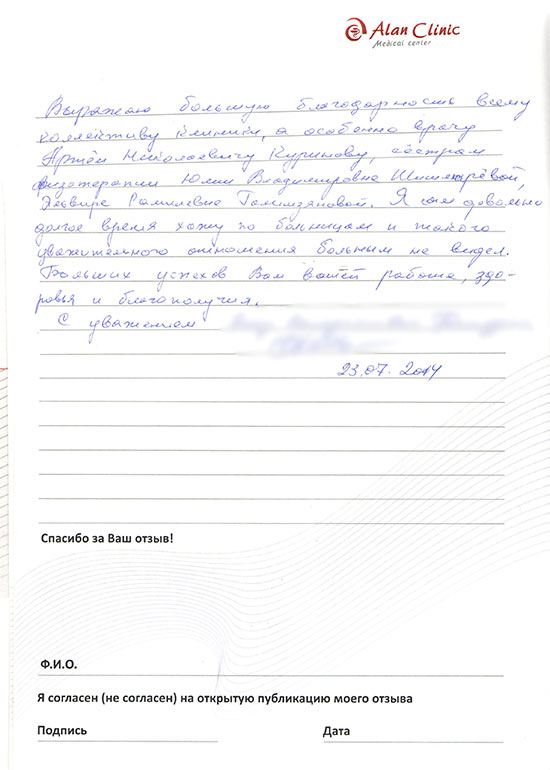 Alan Clinic
Medical center
Выражаю большую благодарность всему
коллективу клиники, а особенно врачу
Артём Николаевичу Куринову, сёстрам
физотерапии Юлии Владимировна
Эльвире Рамилевне Гатиизяновой. Я сам довольно
долгое время хожу по больницам и такого
уважительного отношения больным не видел.
Больших успехов Вам вашей работе, здо-
ровья и благополучия.
С уважением
23.07.2014
Спасибо за Ваш отзыв!
Ф.И.О.
Я согласен (не согласен) на открытую публикацию моего отзыва
Подпись Дата